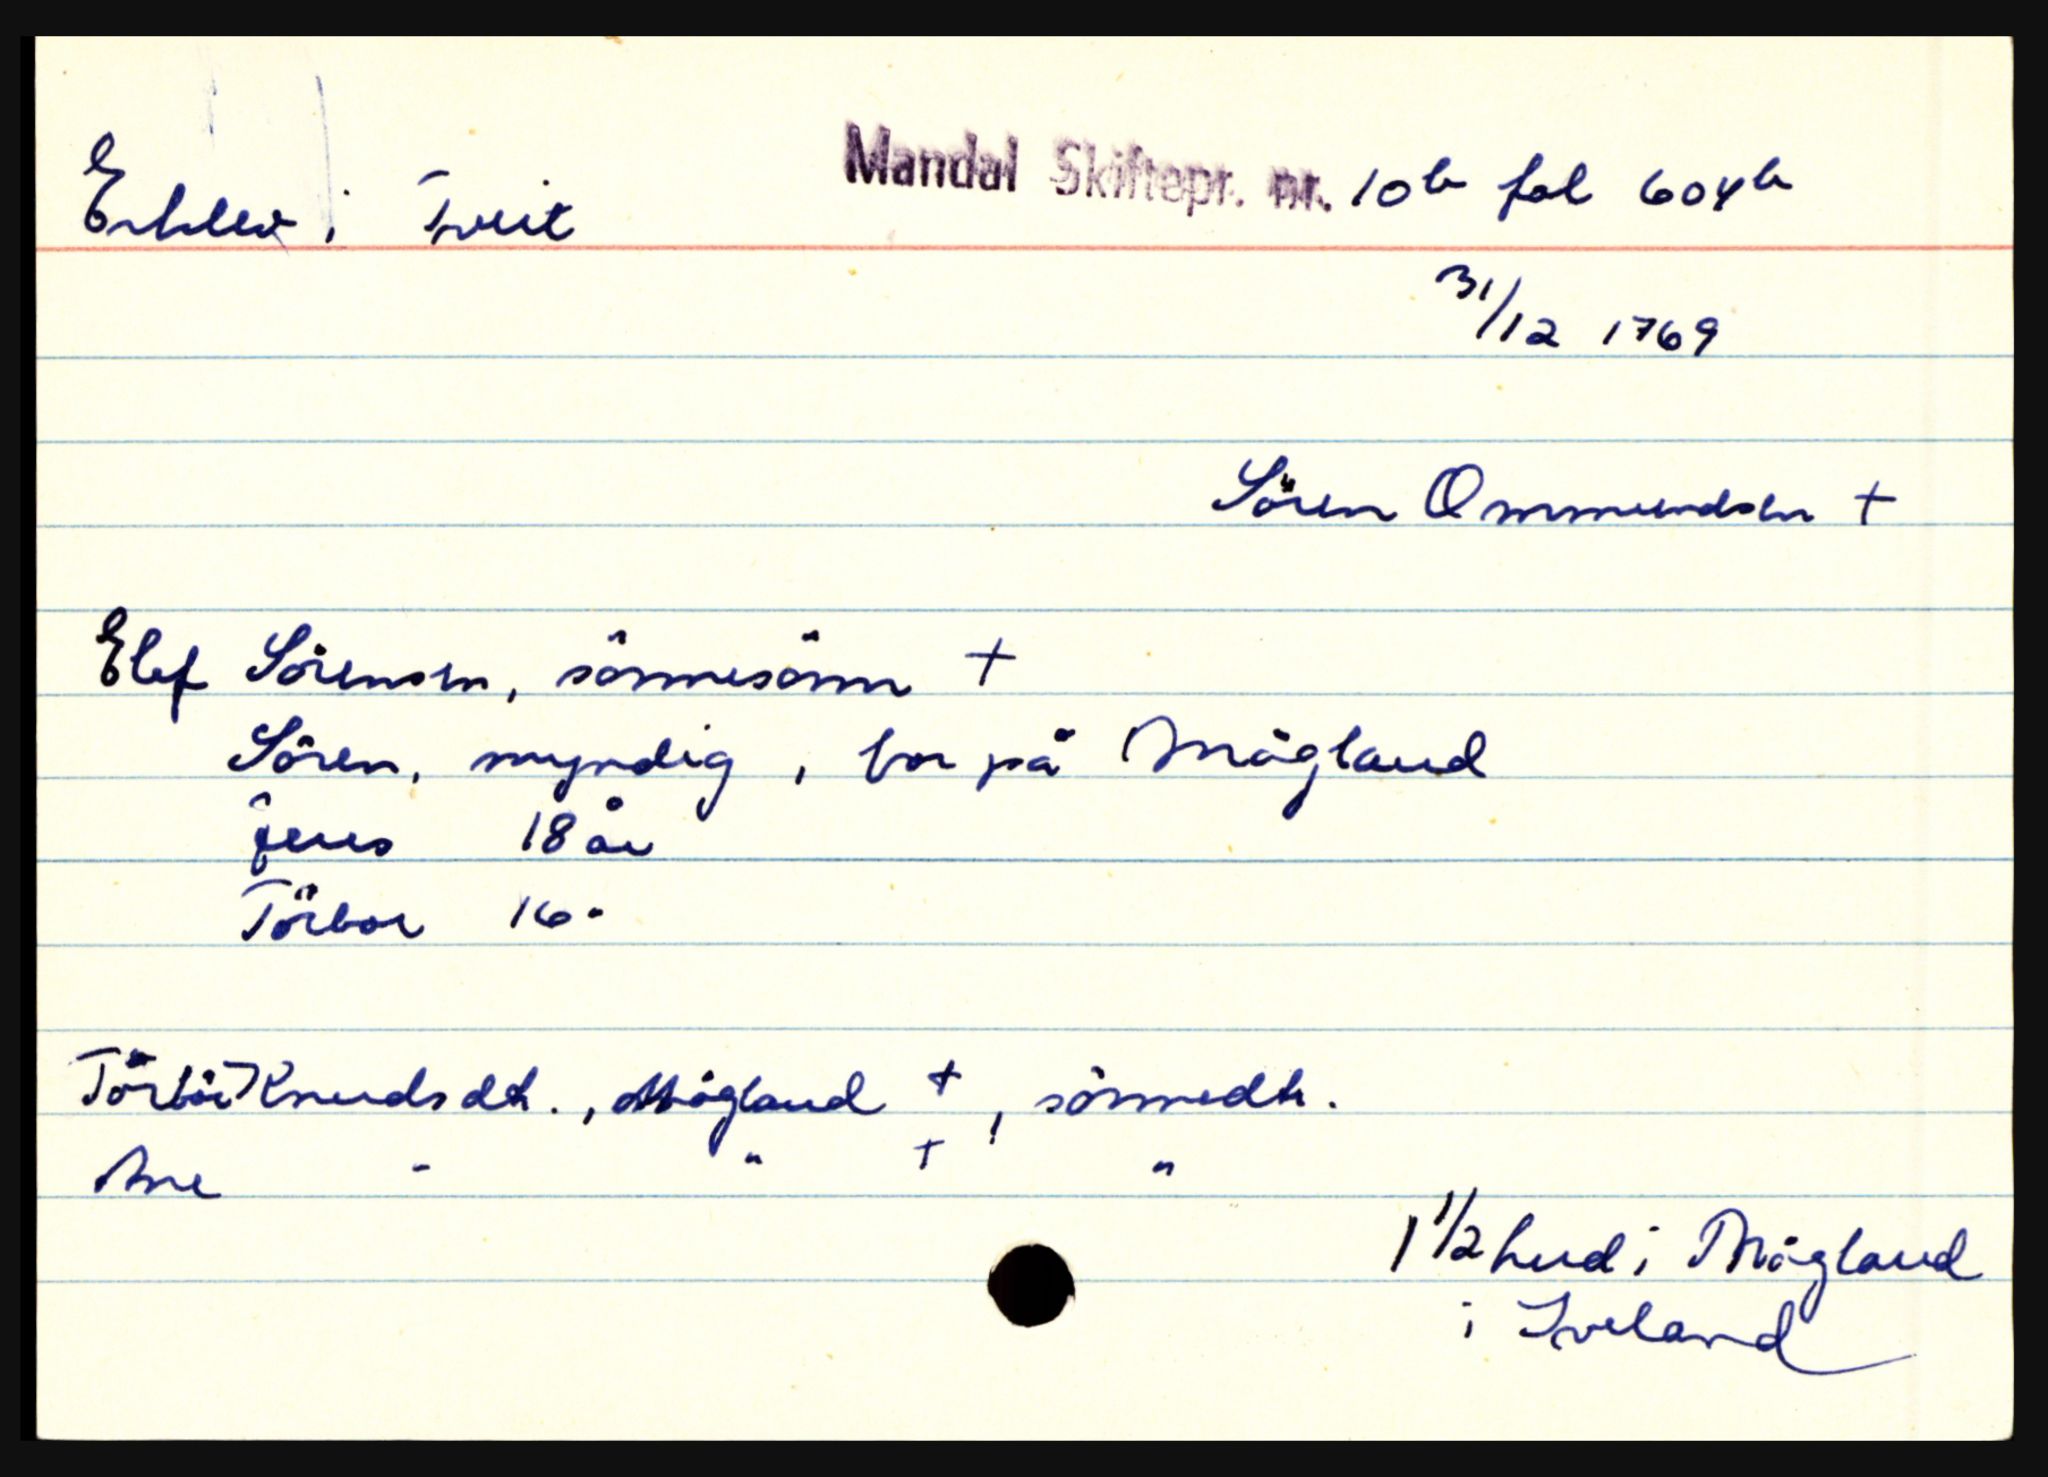 Mandal Skiftepr. nr. 10b fol 604b
Erklev i Tveit
31/12 1769
Sören Ommundsen +
Elef Sörensen, sönnesönn +
Sören, myndig, bor på Mögland
Jens 18 år
Törbor 16 "
Törbör Knudsdtr., Mögland +, sönnedtr.
Ane " " + "
1 1/2 hud i Mögland
i Iveland